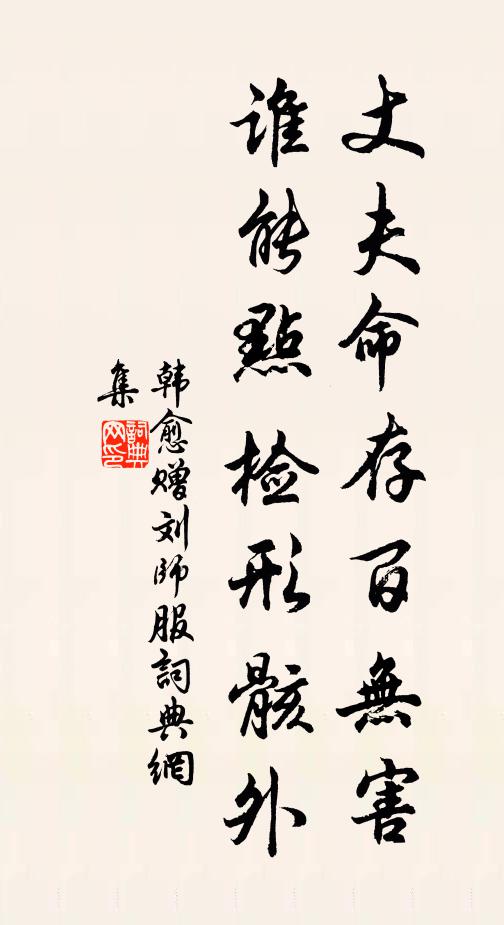 丈夫命存百無害
谁能點檢形骸外
韩愈赠刘師服詞典網
集
詞典
网印